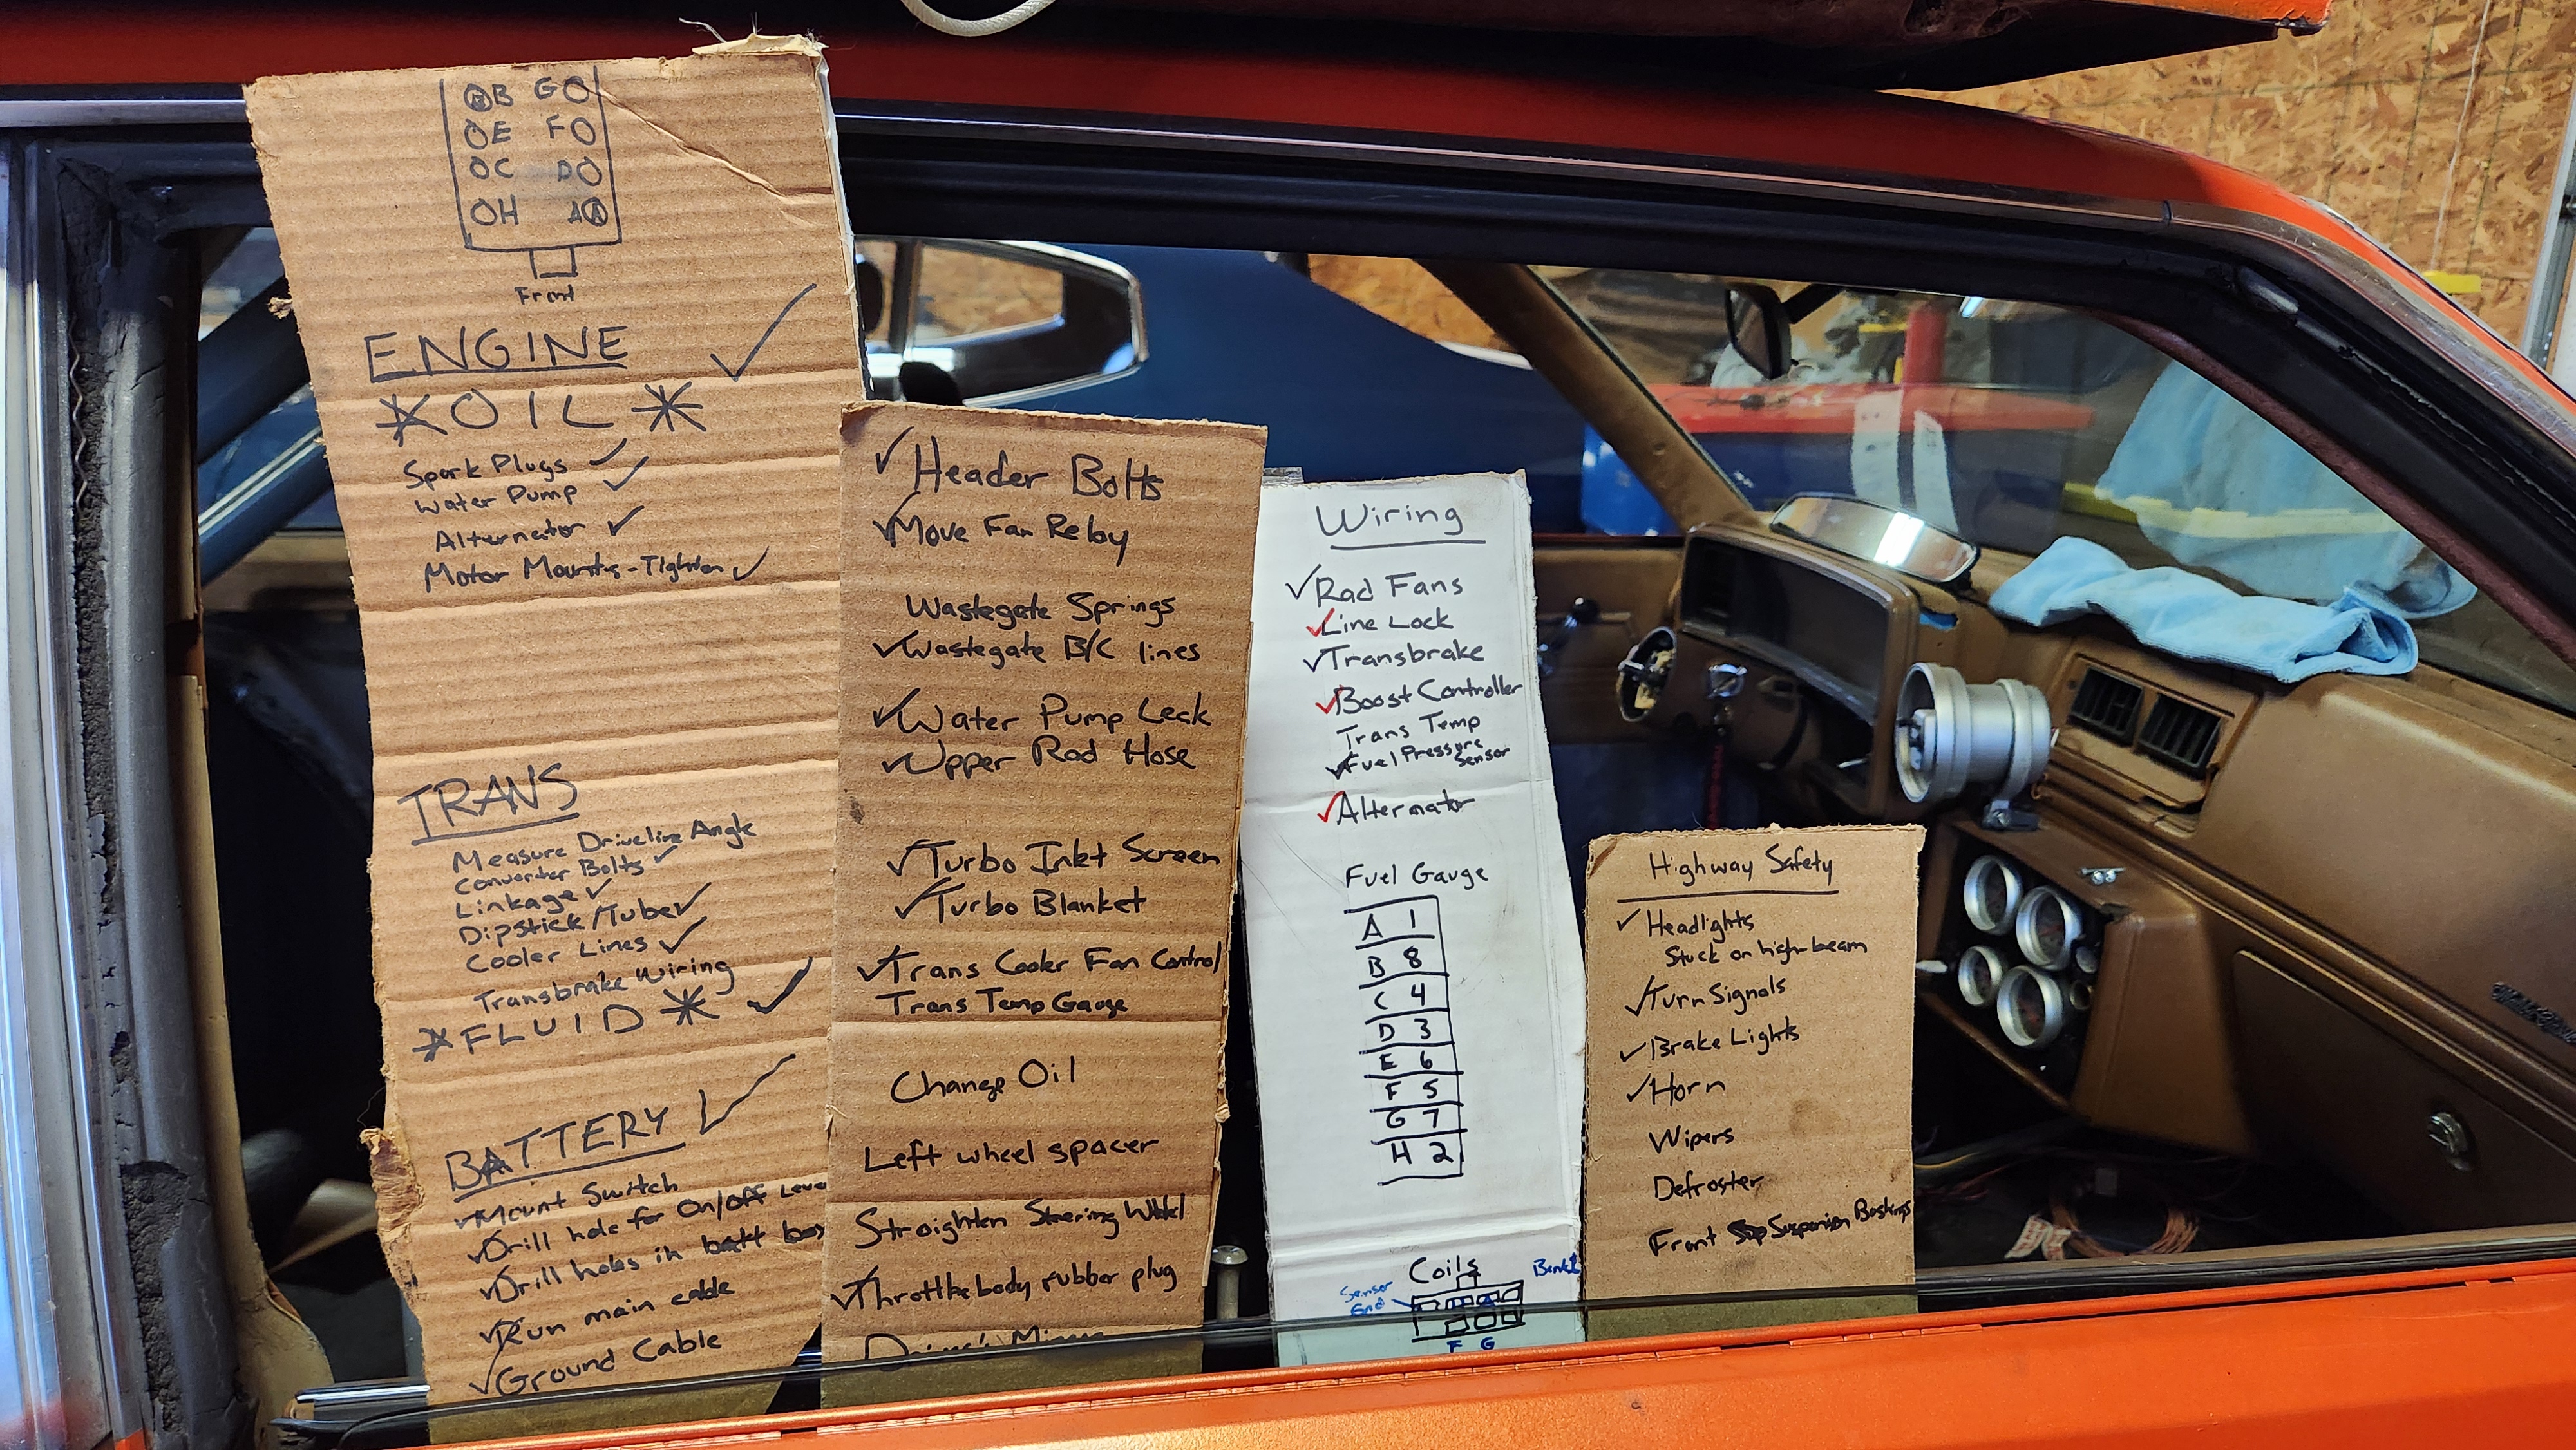 B GO
OE FO
OC DO
OH A
Front
ENGINE ✓
*OIL*
Spark Plugs ✓
Water Pump ✓
Alternator ✓
Motor Mounts-Tighten ✓
TRANS
Measure Driveline Angle
Converter Bolts ✓
Linkage ✓
Dipstick/Tube ✓
Cooler Lines ✓
Transbrake Wiring
*FLUID* ✓
BATTERY ✓
✓Mount Switch
✓Drill hole for On/off
✓Drill holes in batt box
✓Run main cable
✓Ground Cable
✓Header Bolts
✓Move Fan Relay
Wastegate Springs
✓Wastegate B/C lines
✓Water Pump Leak
✓Upper Rad Hose
✓Turbo Inlet Screen
✓Turbo Blanket
✓Trans Cooler Fan Control
Trans Temp Gauge
Change Oil
Left wheel spacer
Straighten Steering Wheel
✓Throttlebody rubber plug
Wiring
✓Rad Fans
✓Line Lock
✓Transbrake
✓Boost Controller
Trans Temp
✓Fuel Pressure
Sensor
✓Alternator
Fuel Gauge
A 1
B 8
C 4
D 3
E 6
F 5
G 7
H 2
Coils
Sensor
Gnd
F G
Highway Safety
✓Headlights
Stuck on high-beam
✓Turn Signals
✓Brake Lights
✓Horn
Wipers
Defroster
Front Suspension